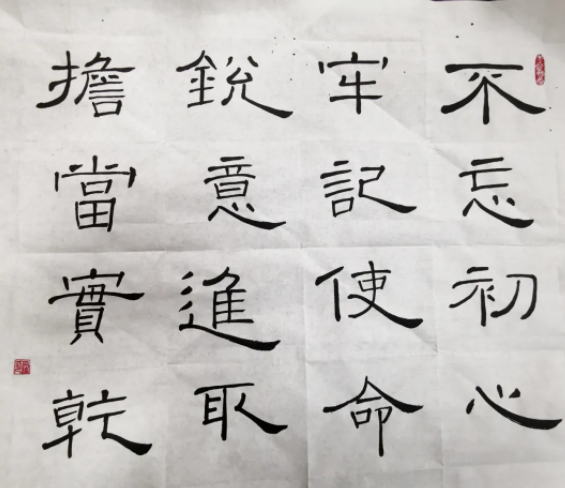 不忘初心
牢記使命
銳意進取
擔當實乾